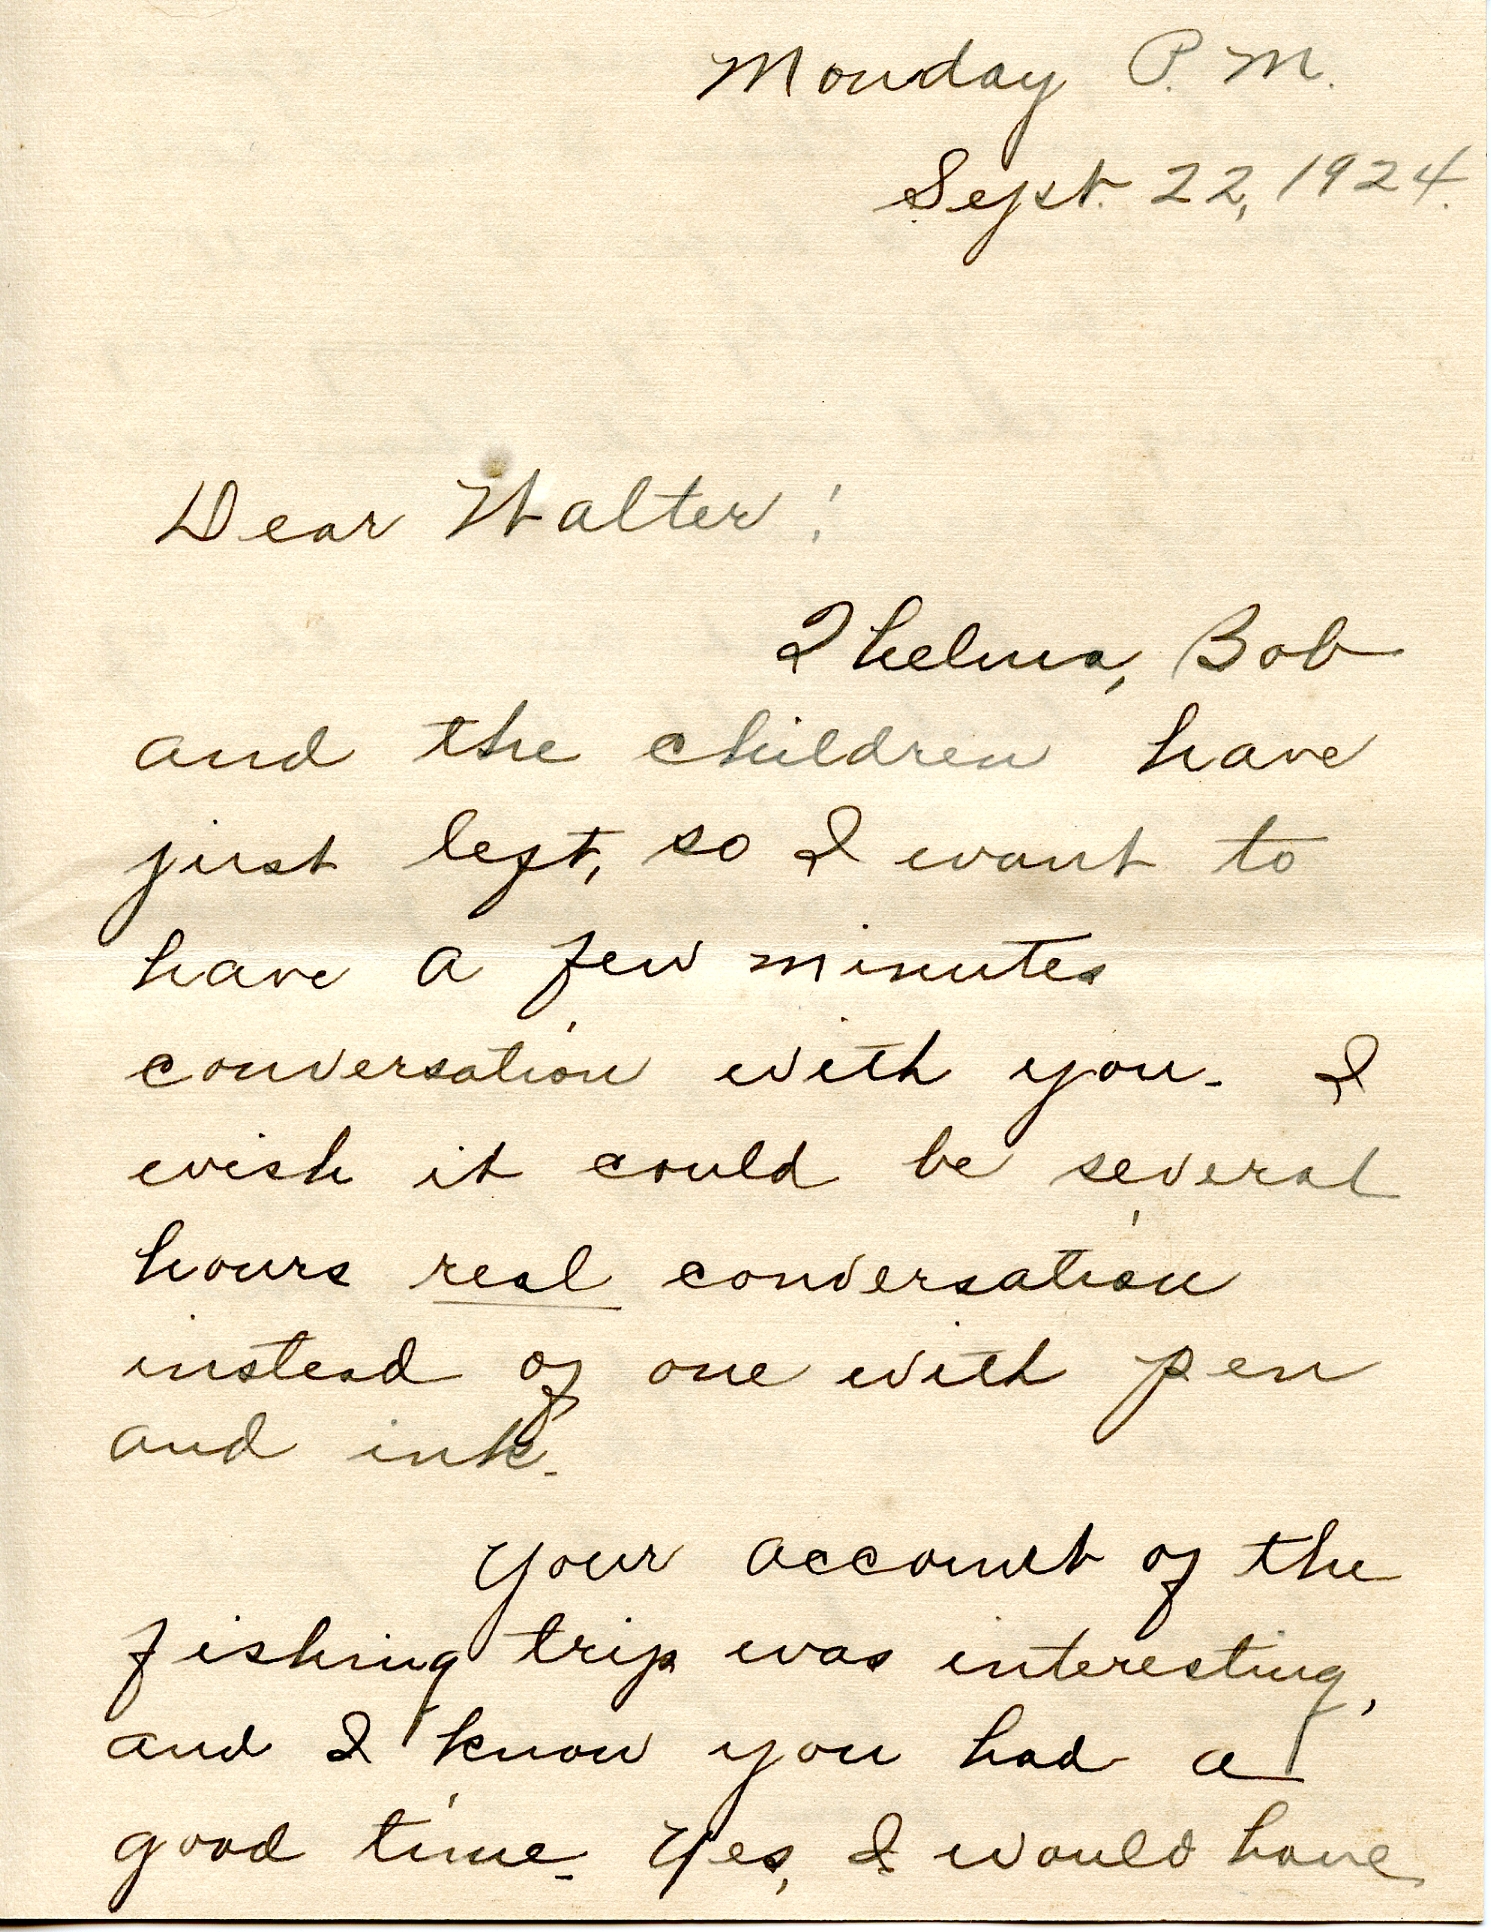 Monday P.M.
Sept. 22, 1924.
Dear Walter:
Thelma, Bob
and the children have
just left, so I want to
have a few minutes
conversation with you. I
wish it could be several
hours real conversation
instead of one with pen
and ink.
Your account of the
fishing trip was interesting,
and I know you had a
good time. Yes, I would have